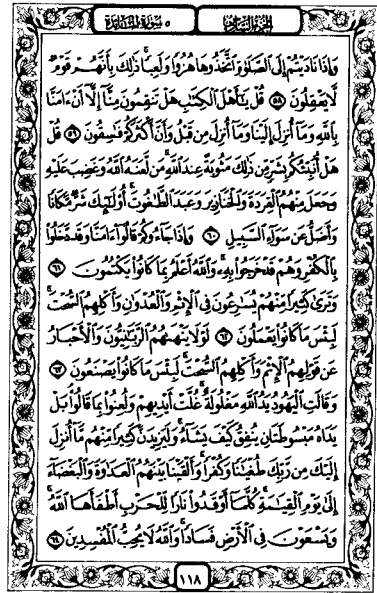 الجزء السادس ٥ سورة المائدة
وَإِذَا نَادَيْتُمْ إِلَى ٱلصَّلَوٰةِ ٱتَّخَذُوهَا هُزُوًا وَلَعِبًا ۚ ذَٰلِكَ بِأَنَّهُمْ قَوْمٌ
لَّا يَعْقِلُونَ ٥٨ قُلْ يَٰٓأَهْلَ ٱلْكِتَٰبِ هَلْ تَنقِمُونَ مِنَّآ إِلَّآ أَنْ ءَامَنَّا
بِٱللَّهِ وَمَآ أُنزِلَ إِلَيْنَا وَمَآ أُنزِلَ مِن قَبْلُ وَأَنَّ أَكْثَرَكُمْ فَٰسِقُونَ ٥٩ قُلْ
هَلْ أُنَبِّئُكُم بِشَرٍّ مِّن ذَٰلِكَ مَثُوبَةً عِندَ ٱللَّهِ ۚ مَن لَّعَنَهُ ٱللَّهُ وَغَضِبَ عَلَيْهِ
وَجَعَلَ مِنْهُمُ ٱلْقِرَدَةَ وَٱلْخَنَازِيرَ وَعَبَدَ ٱلطَّٰغُوتَ ۚ أُو۟لَٰٓئِكَ شَرٌّ مَّكَانًا
وَأَضَلُّ عَن سَوَآءِ ٱلسَّبِيلِ ٦٠ وَإِذَا جَآءُوكُمْ قَالُوٓا۟ ءَامَنَّا وَقَد دَّخَلُوا۟
بِٱلْكُفْرِ وَهُمْ قَدْ خَرَجُوا۟ بِهِۦ ۚ وَٱللَّهُ أَعْلَمُ بِمَا كَانُوا۟ يَكْتُمُونَ ٦١
وَتَرَىٰ كَثِيرًا مِّنْهُمْ يُسَٰرِعُونَ فِى ٱلْإِثْمِ وَٱلْعُدْوَٰنِ وَأَكْلِهِمُ ٱلسُّحْتَ ۚ
لَبِئْسَ مَا كَانُوا۟ يَعْمَلُونَ ٦٢ لَوْلَا يَنْهَىٰهُمُ ٱلرَّبَّٰنِيُّونَ وَٱلْأَحْبَارُ
عَن قَوْلِهِمُ ٱلْإِثْمَ وَأَكْلِهِمُ ٱلسُّحْتَ ۚ لَبِئْسَ مَا كَانُوا۟ يَصْنَعُونَ ٦٣
وَقَالَتِ ٱلْيَهُودُ يَدُ ٱللَّهِ مَغْلُولَةٌ ۚ غُلَّتْ أَيْدِيهِمْ وَلُعِنُوا۟ بِمَا قَالُوا۟ ۘ بَلْ
يَدَاهُ مَبْسُوطَتَانِ يُنفِقُ كَيْفَ يَشَآءُ ۚ وَلَيَزِيدَنَّ كَثِيرًا مِّنْهُم مَّآ أُنزِلَ
إِلَيْكَ مِن رَّبِّكَ طُغْيَٰنًا وَكُفْرًا ۚ وَأَلْقَيْنَا بَيْنَهُمُ ٱلْعَدَٰوَةَ وَٱلْبَغْضَآءَ
إِلَىٰ يَوْمِ ٱلْقِيَٰمَةِ ۚ كُلَّمَآ أَوْقَدُوا۟ نَارًا لِّلْحَرْبِ أَطْفَأَهَا ٱللَّهُ ۚ
وَيَسْعَوْنَ فِى ٱلْأَرْضِ فَسَادًا ۚ وَٱللَّهُ لَا يُحِبُّ ٱلْمُفْسِدِينَ ٦٤
١١٨